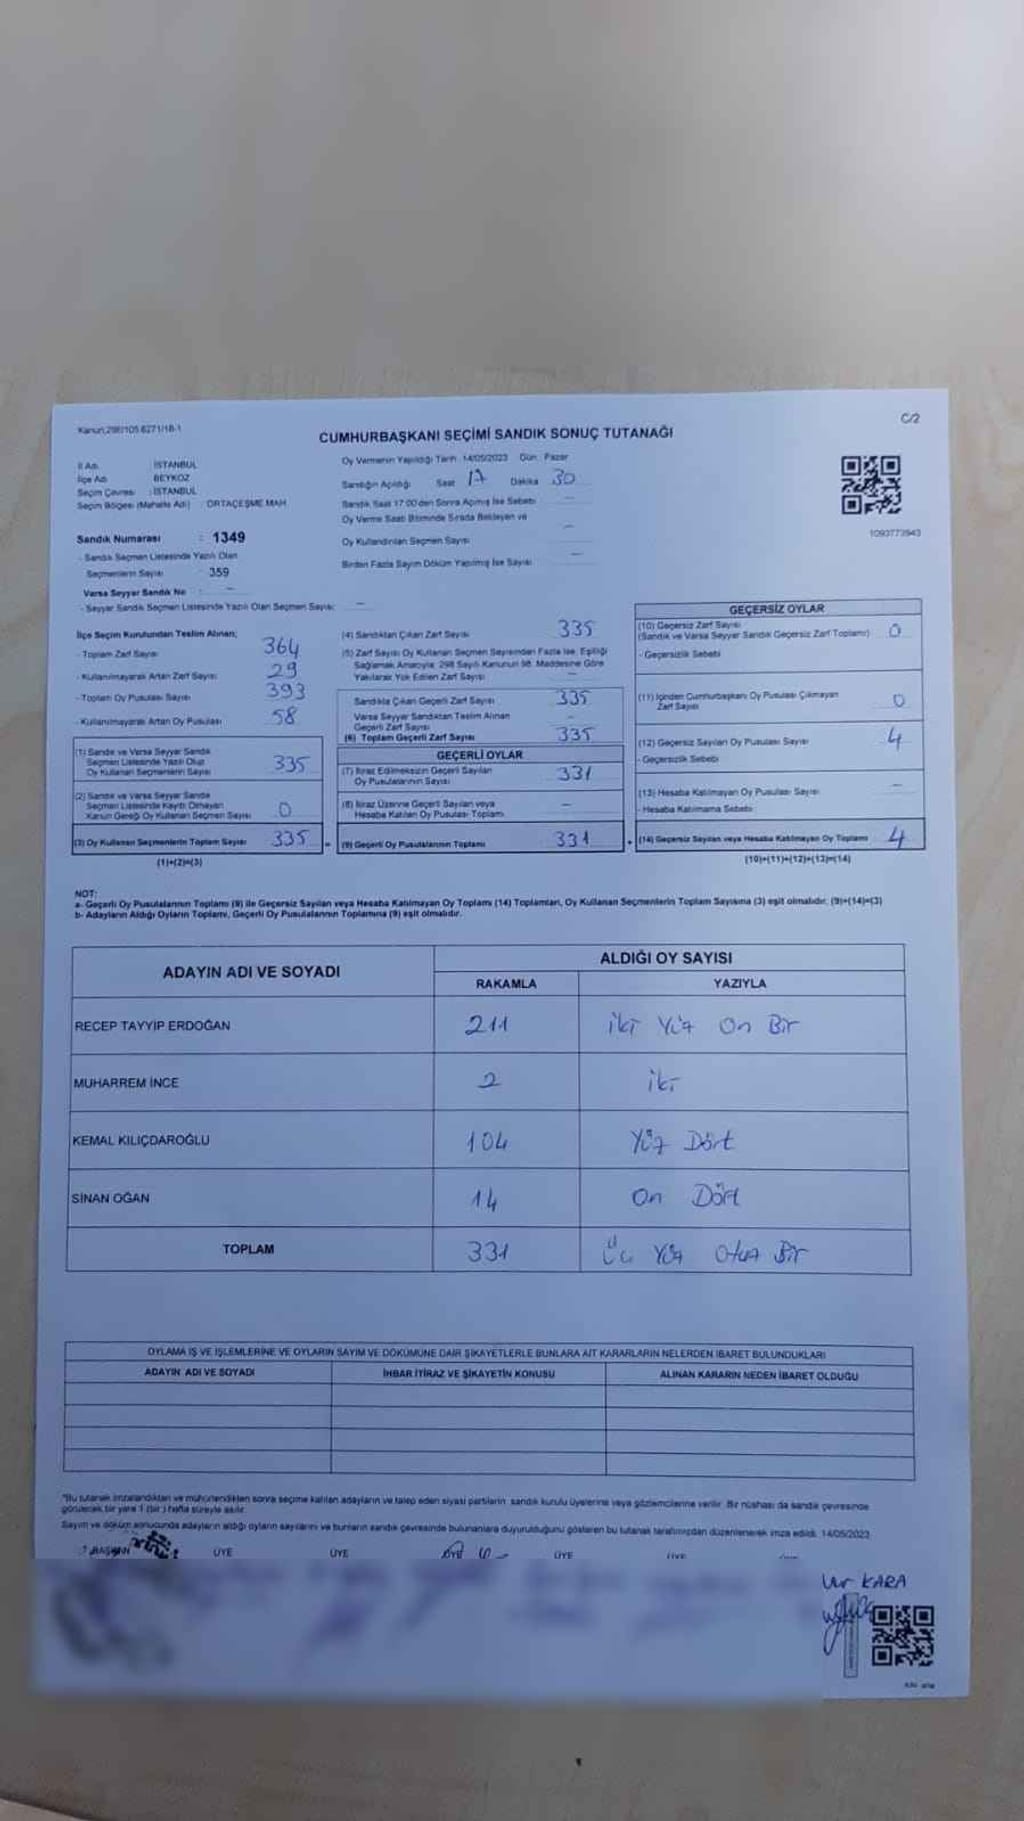 Kanun;298/105 6271/18-1
C/2
CUMHURBAŞKANI SEÇİMİ SANDIK SONUÇ TUTANAĞI
İl Adı : İSTANBUL
İlçe Adı : BEYKOZ
Seçim Çevresi : İSTANBUL
Seçim Bölgesi (Mahalle Adı) : ORTAÇEŞME MAH.
Sandık Numarası : 1349
- Sandık Seçmen Listesinde Yazılı Olan
Seçmenlerin Sayısı 359
Varsa Seyyar Sandık No : -
- Seyyar Sandık Seçmen Listesinde Yazılı Olan Seçmen Sayısı: -
Oy Vermenin Yapıldığı Tarih :14/05/2023 Gün : Pazar
Sandığın Açıldığı Saat 17 Dakika 30
Sandık Saat 17:00'den Sonra Açılmış İse Sebebi -
Oy Verme Saati Bitiminde Sırada Bekleyen ve
Oy Kullandırılan Seçmen Sayısı -
Birden Fazla Sayım Döküm Yapılmış İse Sayısı -
1093773943
İlçe Seçim Kurulundan Teslim Alınan;
- Toplam Zarf Sayısı 364
- Kullanılmayarak Artan Zarf Sayısı 29
- Toplam Oy Pusulası Sayısı 393
- Kullanılmayarak Artan Oy Pusulası 58
(1) Sandık ve Varsa Seyyar Sandık
Seçmen Listesinde Yazılı Olup
Oy Kullanan Seçmenlerin Sayısı 335
(2) Sandık ve Varsa Seyyar Sandık
Seçmen Listesinde Kayıtlı Olmayan
Kanun Gereği Oy Kullanan Seçmen Sayısı 0
(3) Oy Kullanan Seçmenlerin Toplam Sayısı 335
(1)+(2)=(3)
(4) Sandıktan Çıkan Zarf Sayısı 335
(5) Zarf Sayısı Oy Kullanan Seçmen Sayısından Fazla İse, Eşitliği
Sağlamak Amacıyla; 298 Sayılı Kanunun 98. Maddesine Göre
Yakılarak Yok Edilen Zarf Sayısı -
Sandıkta Çıkan Geçerli Zarf Sayısı 335
Varsa Seyyar Sandıktan Teslim Alınan
Geçerli Zarf Sayısı -
(6) Toplam Geçerli Zarf Sayısı 335
GEÇERLİ OYLAR
(7) İtiraz Edilmeksizin Geçerli Sayılan
Oy Pusulalarının Sayısı 331
(8) İtiraz Üzerine Geçerli Sayılan veya
Hesaba Katılan Oy Pusulası Toplamı -
(9) Geçerli Oy Pusulalarının Toplamı 331
GEÇERSİZ OYLAR
(10) Geçersiz Zarf Sayısı
(Sandık ve Varsa Seyyar Sandık Geçersiz Zarf Toplamı) 0
- Geçersizlik Sebebi
(11) İçinden Cumhurbaşkanı Oy Pusulası Çıkmayan
Zarf Sayısı 0
(12) Geçersiz Sayılan Oy Pusulası Sayısı 4
- Geçersizlik Sebebi
(13) Hesaba Katılmayan Oy Pusulası Sayısı -
- Hesaba Katılmama Sebebi
(14) Geçersiz Sayılan veya Hesaba Katılmayan Oy Toplamı 4
(10)+(11)+(12)+(13)=(14)
NOT:
a- Geçerli Oy Pusulalarının Toplamı (9) ile Geçersiz Sayılan veya Hesaba Katılmayan Oy Toplamı (14) Toplamları, Oy Kullanan Seçmenlerin Toplam Sayısına (3) eşit olmalıdır. (9)+(14)=(3)
b- Adayların Aldığı Oyların Toplamı, Geçerli Oy Pusulalarının Toplamına (9) eşit olmalıdır.
ADAYIN ADI VE SOYADI
ALDIĞI OY SAYISI
RAKAMLA YAZIYLA
RECEP TAYYİP ERDOĞAN 211 İki Yüz On Bir
MUHARREM İNCE 2 İki
KEMAL KILIÇDAROĞLU 104 Yüz Dört
SİNAN OĞAN 14 On Dört
TOPLAM 331 Üç Yüz Otuz Bir
OYLAMA İŞ VE İŞLEMLERİNE VE OYLARIN SAYIM VE DÖKÜMÜNE DAİR ŞİKAYETLERLE BUNLARA AİT KARARLARIN NELERDEN İBARET BULUNDUKLARI
ADAYIN ADI VE SOYADI İHBAR İTİRAZ VE ŞİKAYETİN KONUSU ALINAN KARARIN NEDEN İBARET OLDUĞU
"Bu tutanak imzalandıktan ve mühürlendikten sonra seçime katılan adayların ve talep eden siyasi partilerin sandık kurulu üyelerine veya gözlemcilerine verilir. Bir nüshası da sandık çevresinde
görülecek bir yere 1 (bir) hafta süreyle asılır.
Sayım ve döküm sonucunda adayların aldığı oyların sayılarını ve bunların sandık çevresinde bulunanlara duyurulduğunu gösteren bu tutanak tarafımızdan düzenlenerek imza edildi. 14/05/2023
BAŞKAN ÜYE ÜYE ÜYE ÜYE
KARA